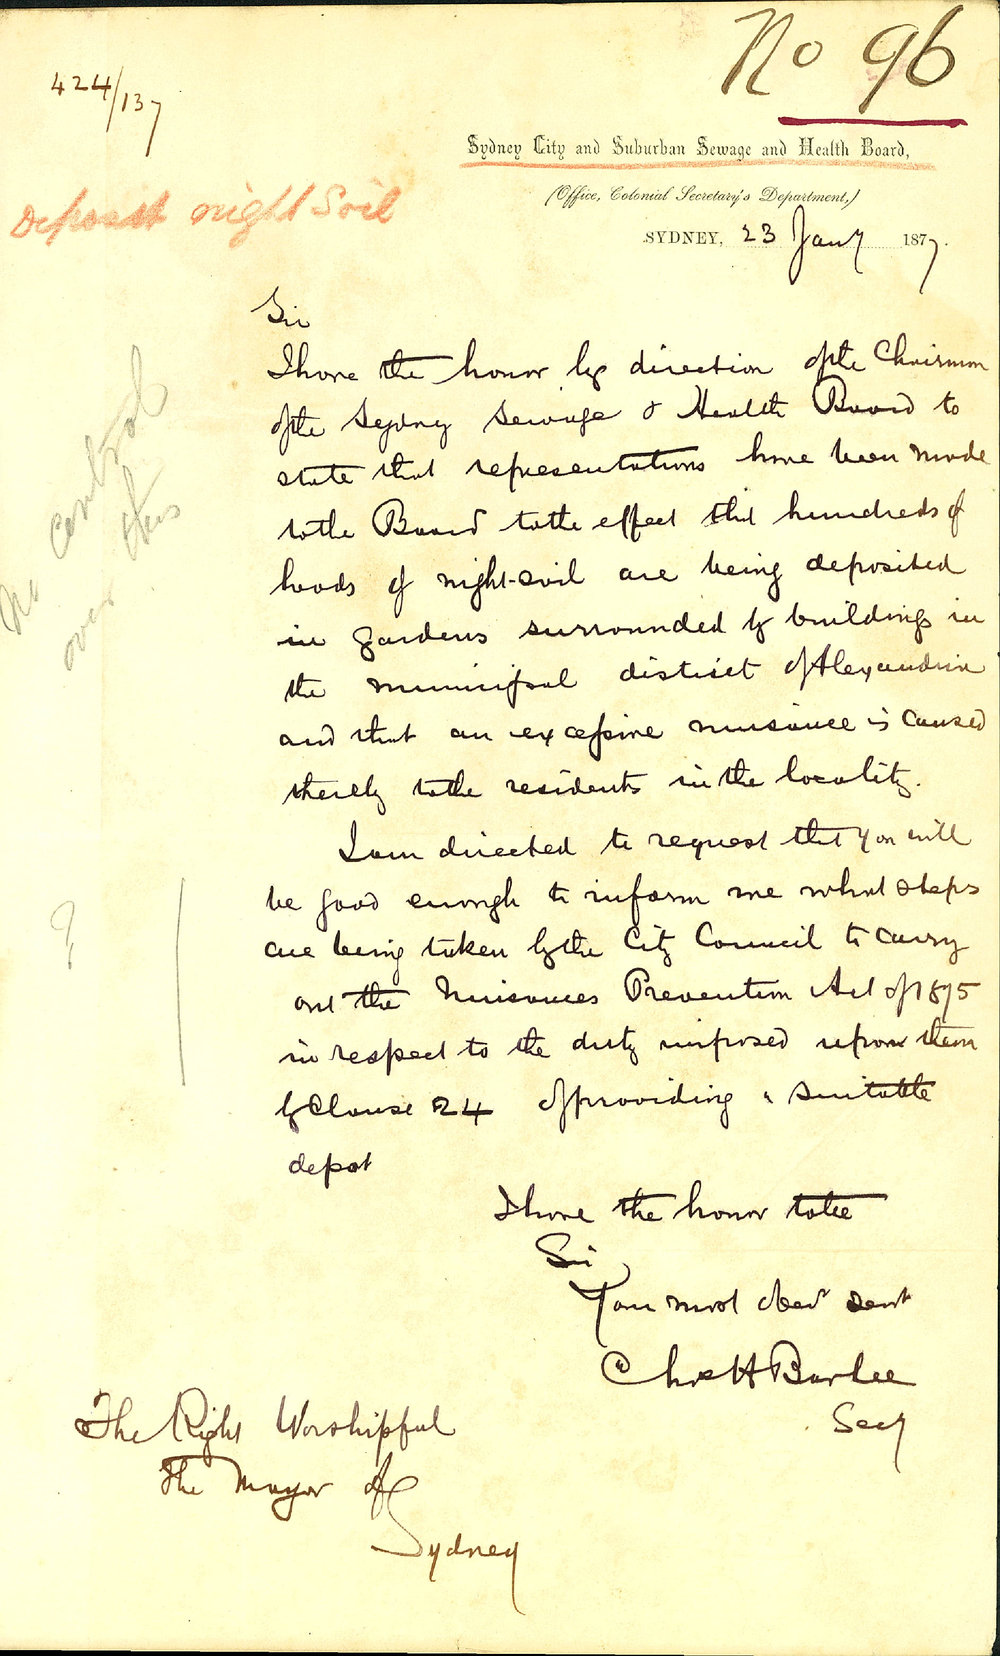 No 96
424/137
Sydney City and Suburban Sewage and Health Board,
(Office, Colonial Secretary's Department,)
Deposit night Soil
SYDNEY, 23 Jany 1877.
Sir
I have the honor by direction of the Chairman
of the Sydney Sewage & Health Board to
state that representations have been made
to the Board to the effect that hundreds of
loads of night-soil are being deposited
in gardens surrounded by buildings in
the municipal district of Alexandria
and that an excessive nuisance is caused
thereby to the residents in the locality.
No control
over this
I am directed to request that you will
be good enough to inform me what steps
are being taken by the City Council to carry
out the Nuisances Prevention Act of 1875
in respect to the duty imposed upon them
by Clause 24 of providing a suitable
depot
?
I have the honor to be
Sir
Your most obedt servt
Chas H Barlee
Secy
The Right Worshipful
The Mayor of
Sydney